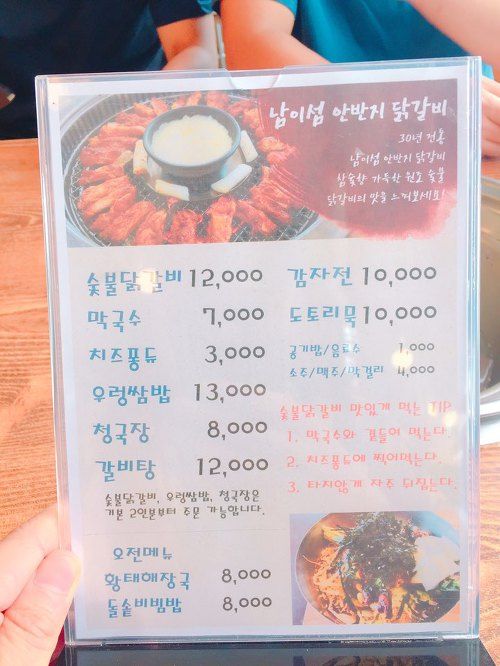 남이섬 안반지 닭갈비
30년 전통
남이섬 안반지 닭갈비
참숯향 가득한 원조 숯불
닭갈비의 맛을 느껴보세요!
숯불닭갈비 12,000
막국수 7,000
치즈퐁듀 3,000
우렁쌈밥 13,000
청국장 8,000
갈비탕 12,000
숯불닭갈비, 우렁쌈밥, 청국장은
기본 2인분부터 주문 가능합니다.
오전메뉴
황태해장국 8,000
돌솥비빔밥 8,000
감자전 10,000
도토리묵 10,000
공기밥/음료수 1,000
소주/맥주/막걸리 4,000
숯불닭갈비 맛있게 먹는 TIP
1. 막국수와 곁들어 먹는다.
2. 치즈퐁듀에 찍어먹는다.
3. 타지않게 자주 뒤집는다.